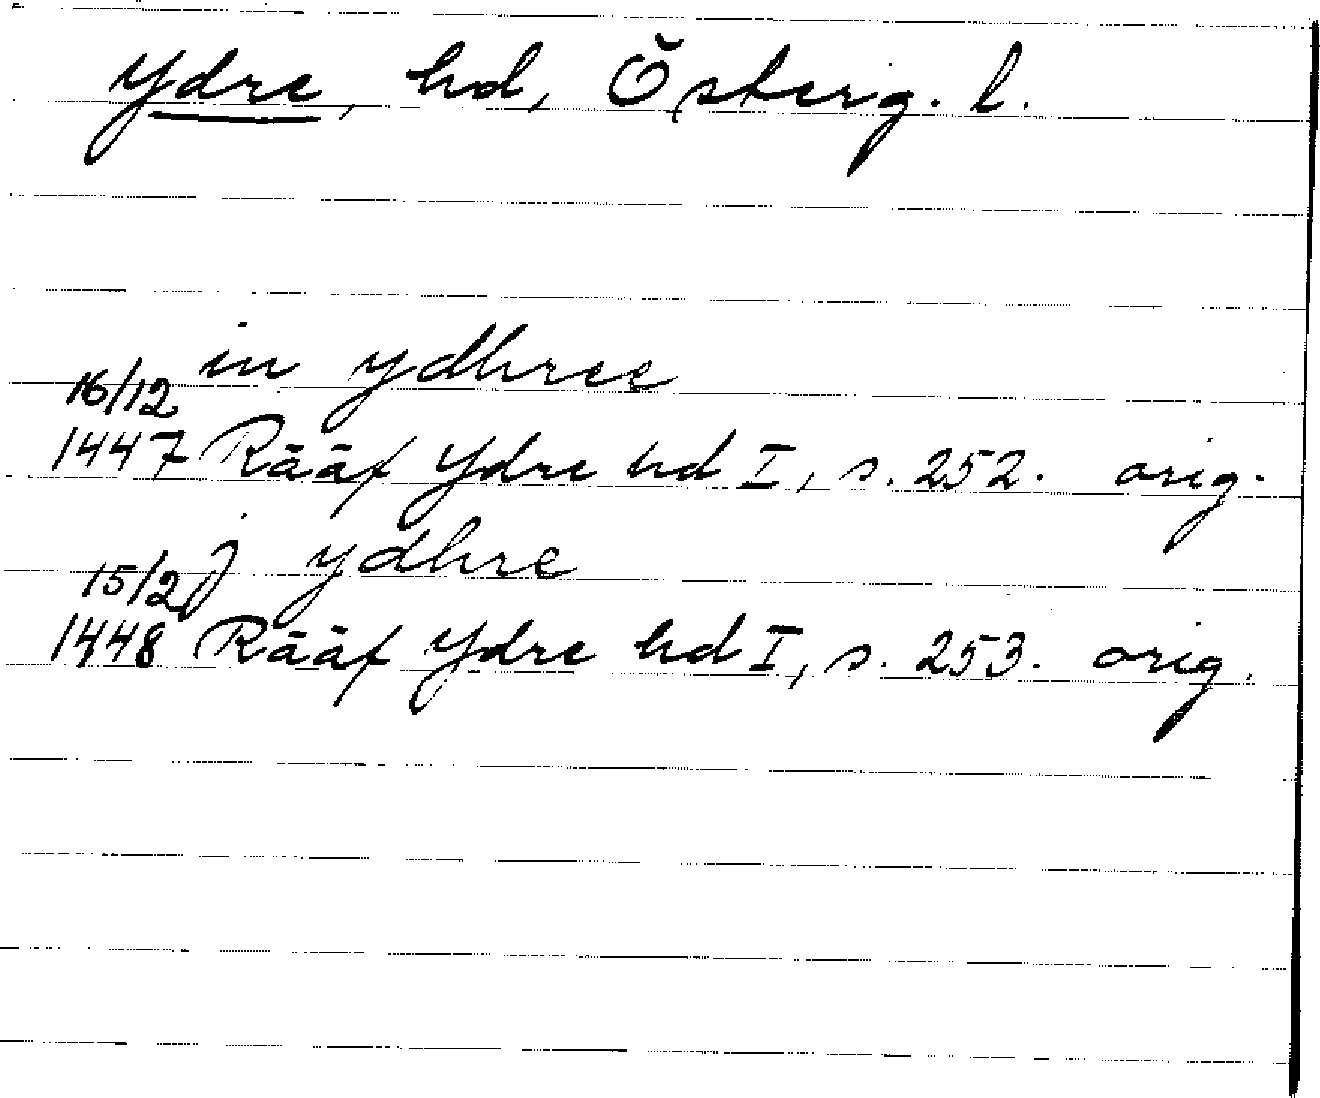 Ydre, hd, Österg. l.
in ydhree
16/12
1447 Rääf Ydre hd I, s. 252. orig.
15/2 j ydhre
1448 Rääf Ydre hd I, s. 253. orig.